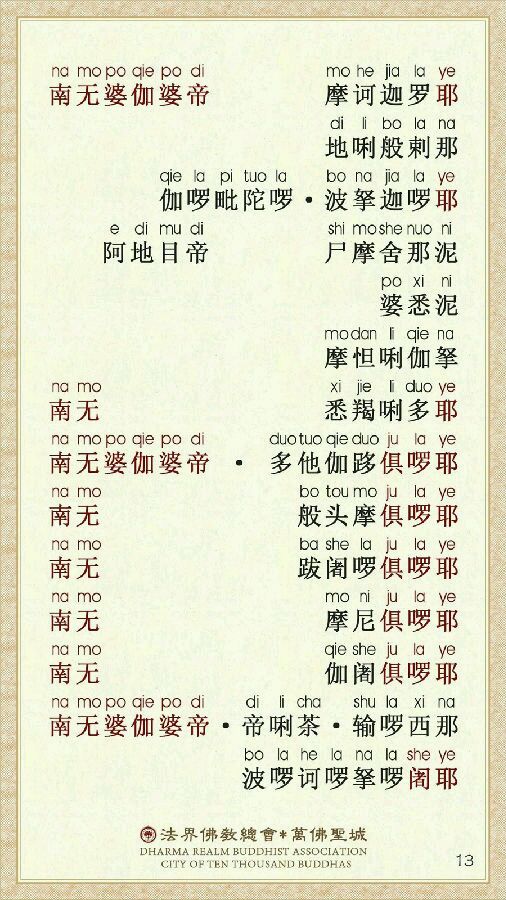 na mo po qie po di mo he jia la ye
南无婆伽婆帝 摩诃迦罗耶
di li bo la na
地唎般剌那
qie la pi tuo la bo na jia la ye
伽啰毗陀啰·波拏迦啰耶
e di mu di shi mo she nuo ni
阿地目帝 尸摩舍那泥
po xi ni
婆悉泥
mo dan li qie na
摩怛唎伽拏
na mo xi jie li duo ye
南无 悉羯唎多耶
na mo po qie po di duo tuo qie duo ju la ye
南无婆伽婆帝 · 多他伽跢俱啰耶
na mo bo tou mo ju la ye
南无 般头摩俱啰耶
na mo ba she la ju la ye
南无 跋阇啰俱啰耶
na mo mo ni ju la ye
南无 摩尼俱啰耶
na mo qie she ju la ye
南无 伽阇俱啰耶
na mo po qie po di di li cha shu la xi na
南无婆伽婆帝·帝唎茶·输啰西那
bo la he la na la she ye
波啰诃啰拏啰阇耶
法界佛教總會*萬佛聖城
DHARMA REALM BUDDHIST ASSOCIATION
CITY OF TEN THOUSAND BUDDHAS
13